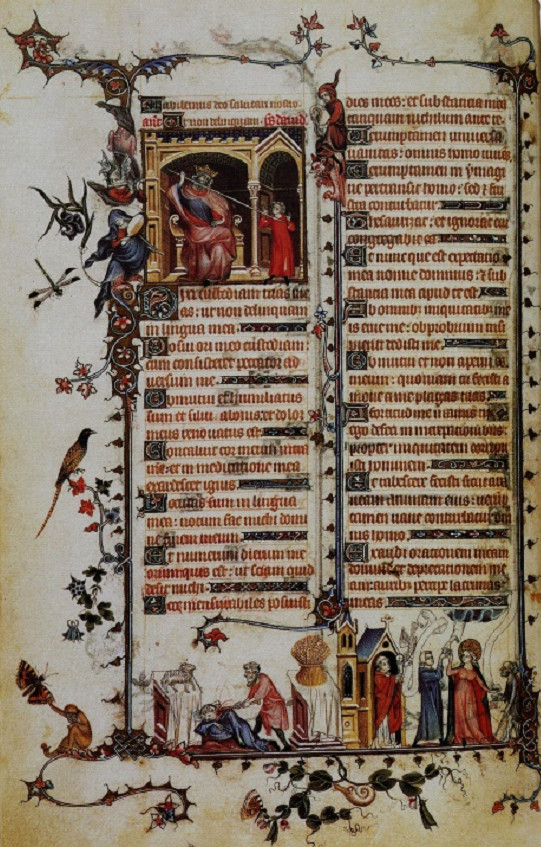 deo salutari nostro
Ut non delinquam. ps david
Dixi custodiam vias me
as: ut non delinquam
in lingua mea
Posui ori meo custodiam:
cum consisteret peccator ad
versum me
Obmutui et humiliatus
sum et silui a bonis: et dolor
meus renovatus est
Concaluit cor meum intra
me: et in meditatione mea
exardescet ignis
Locutus sum in lingua
mea: notum fac michi domi
ne finem meum
Et numerum dierum me
orum quis est: ut sciam quid
desit michi
Ecce mensurabiles posuisti
dies meos: et substancia mea
tanquam nichilum ante te
Verumptamen universa
vanitas: omnis homo vivens
Verumptamen in ymagi
ne pertransit homo: sed et frus
tra conturbatur
Thesaurizat: et ignorat cui
congregabit ea
Et nunc que est expectatio
mea nonne dominus: et sub
stancia mea apud te est
Ab omnibus iniquitatibus me
is erue me: obprobrium insi
pienti dedisti me
Obmutui et non aperui os
meum: quoniam tu fecisti a
move a me plagas tuas
A fortitudine manus tue
ego defeci in increpationibus
propter iniquitatem corripu
isti hominem
Et tabescere fecisti sicut ara
neam animam eius: verump
tamen vane conturbatur om
nis homo
Exaudi orationem meam
domine et deprecationem me
am: auribus percipe lacrimas
meas